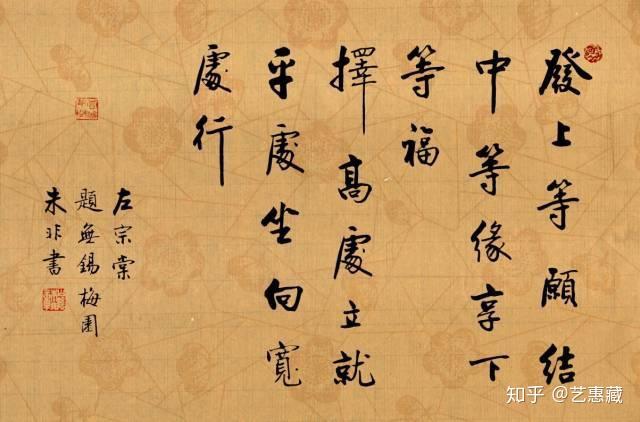 發上等願結
中等緣享下
等福
擇高處立就
平處坐向寬
處行
左宗棠
題無錫梅園
未非書
知乎 @艺惠藏